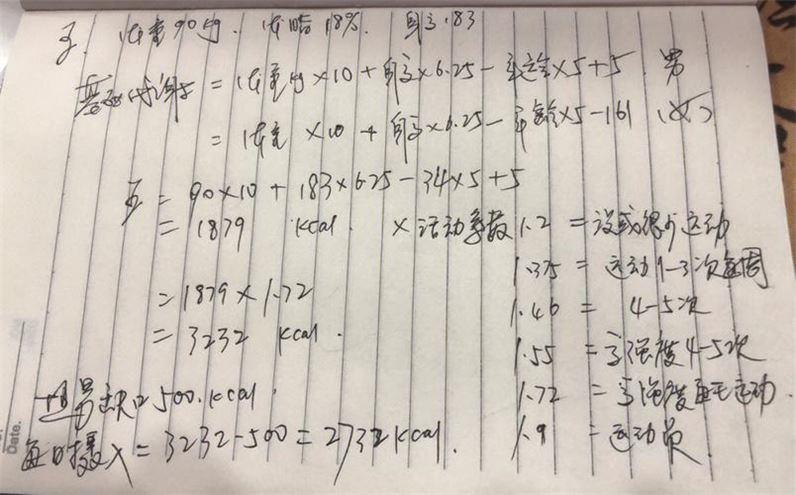 王. 体重90kg. 体脂18%. 身高183
基础代谢 = 体重kg×10+身高×6.25-年龄×5+5 男
= 体重×10+身高×6.25-年龄×5-161 (女)
王 = 90×10+183×6.25-34×5+5
= 1879 kcal. ×活动系数 1.2 = 没或很少运动
1.375 = 运动1-3次每周
= 1879×1.72
1.46 = 4-5次
= 3232 kcal.
1.55 = 高强度4-5次
缺口500.kcal.
1.72 = 高强度每天运动.
每日摄入 = 3232-500 = 2732kcal.
1.9 = 运动员
Date.